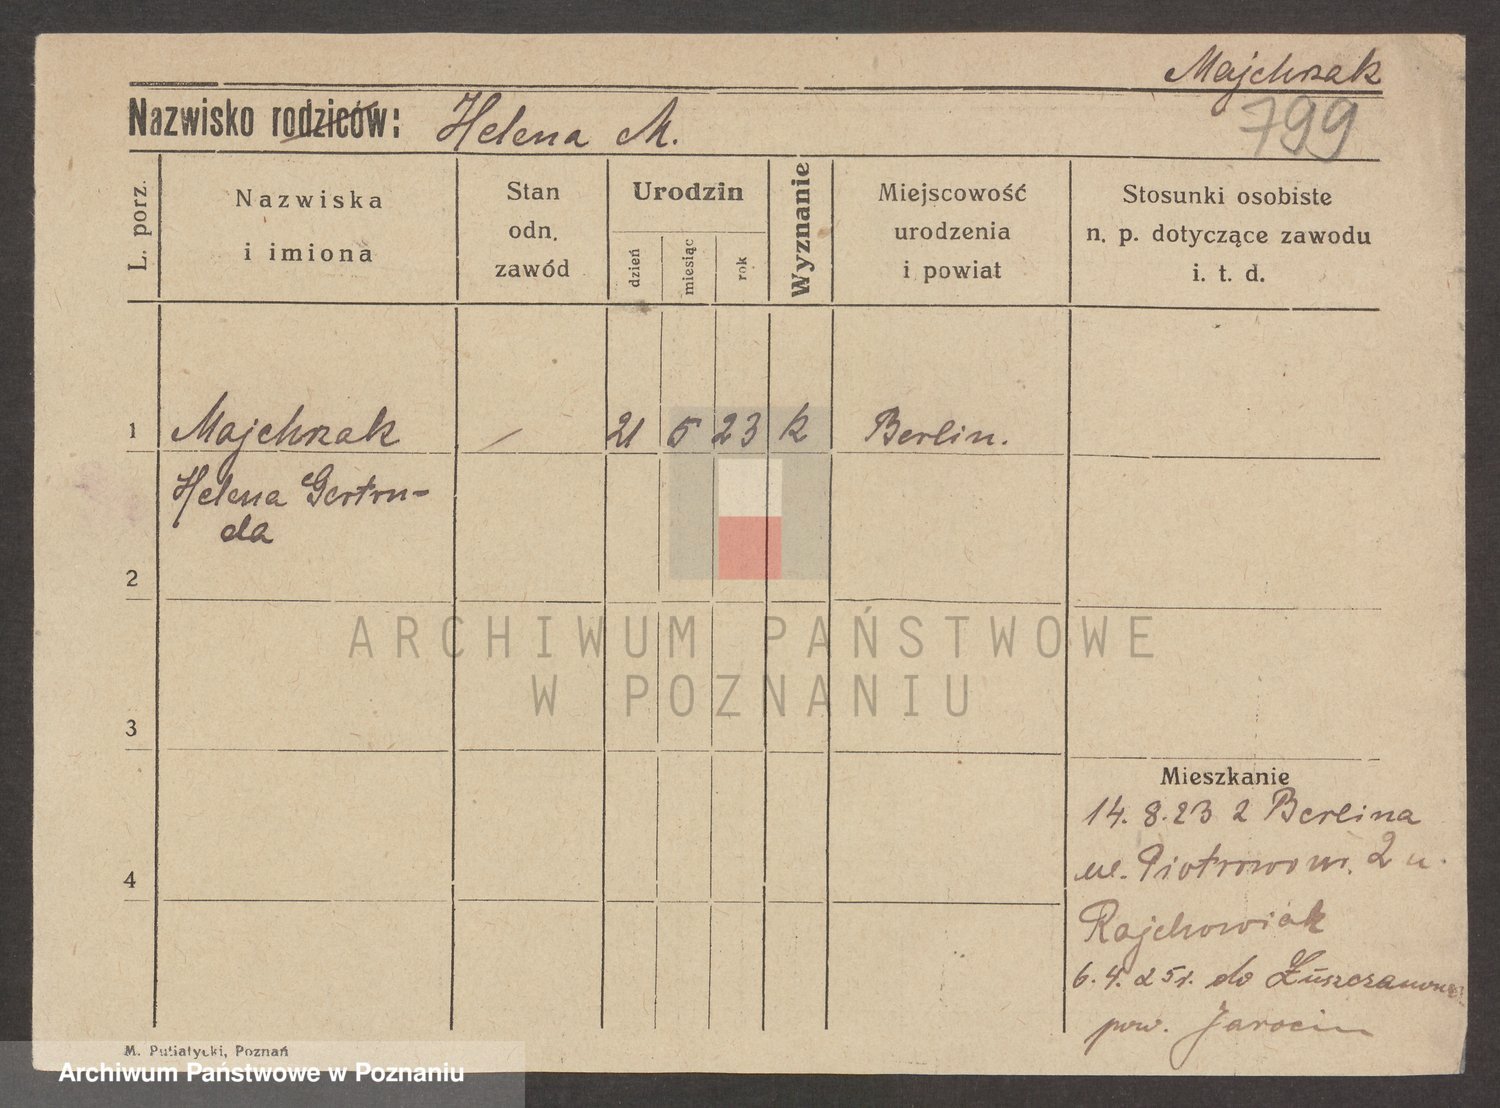 Majchrzak
799
Nazwisko rodziców: Helena M.
L. porz.
Nazwiska
i imiona
Stan
odn.
zawód
Urodzin
dzień
miesiąc
rok
Wyznanie
Miejscowość
urodzenia
i powiat
Stosunki osobiste
n. p. dotyczące zawodu
i. t. d.
1 Majchrzak / 21 5 23 k Berlin.
Helena Gertru-
da
2
3
4
ARCHIWUM PAŃSTWOWE
W POZNANIU
Mieszkanie
14. 8. 23 z Berlina
ul. Piotrowo nr. 2 u.
Rajchowiak
6. 4. 25 r. do
pow. Jarocin
M. Putiatycki, Poznań
Archiwum Państwowe w Poznaniu